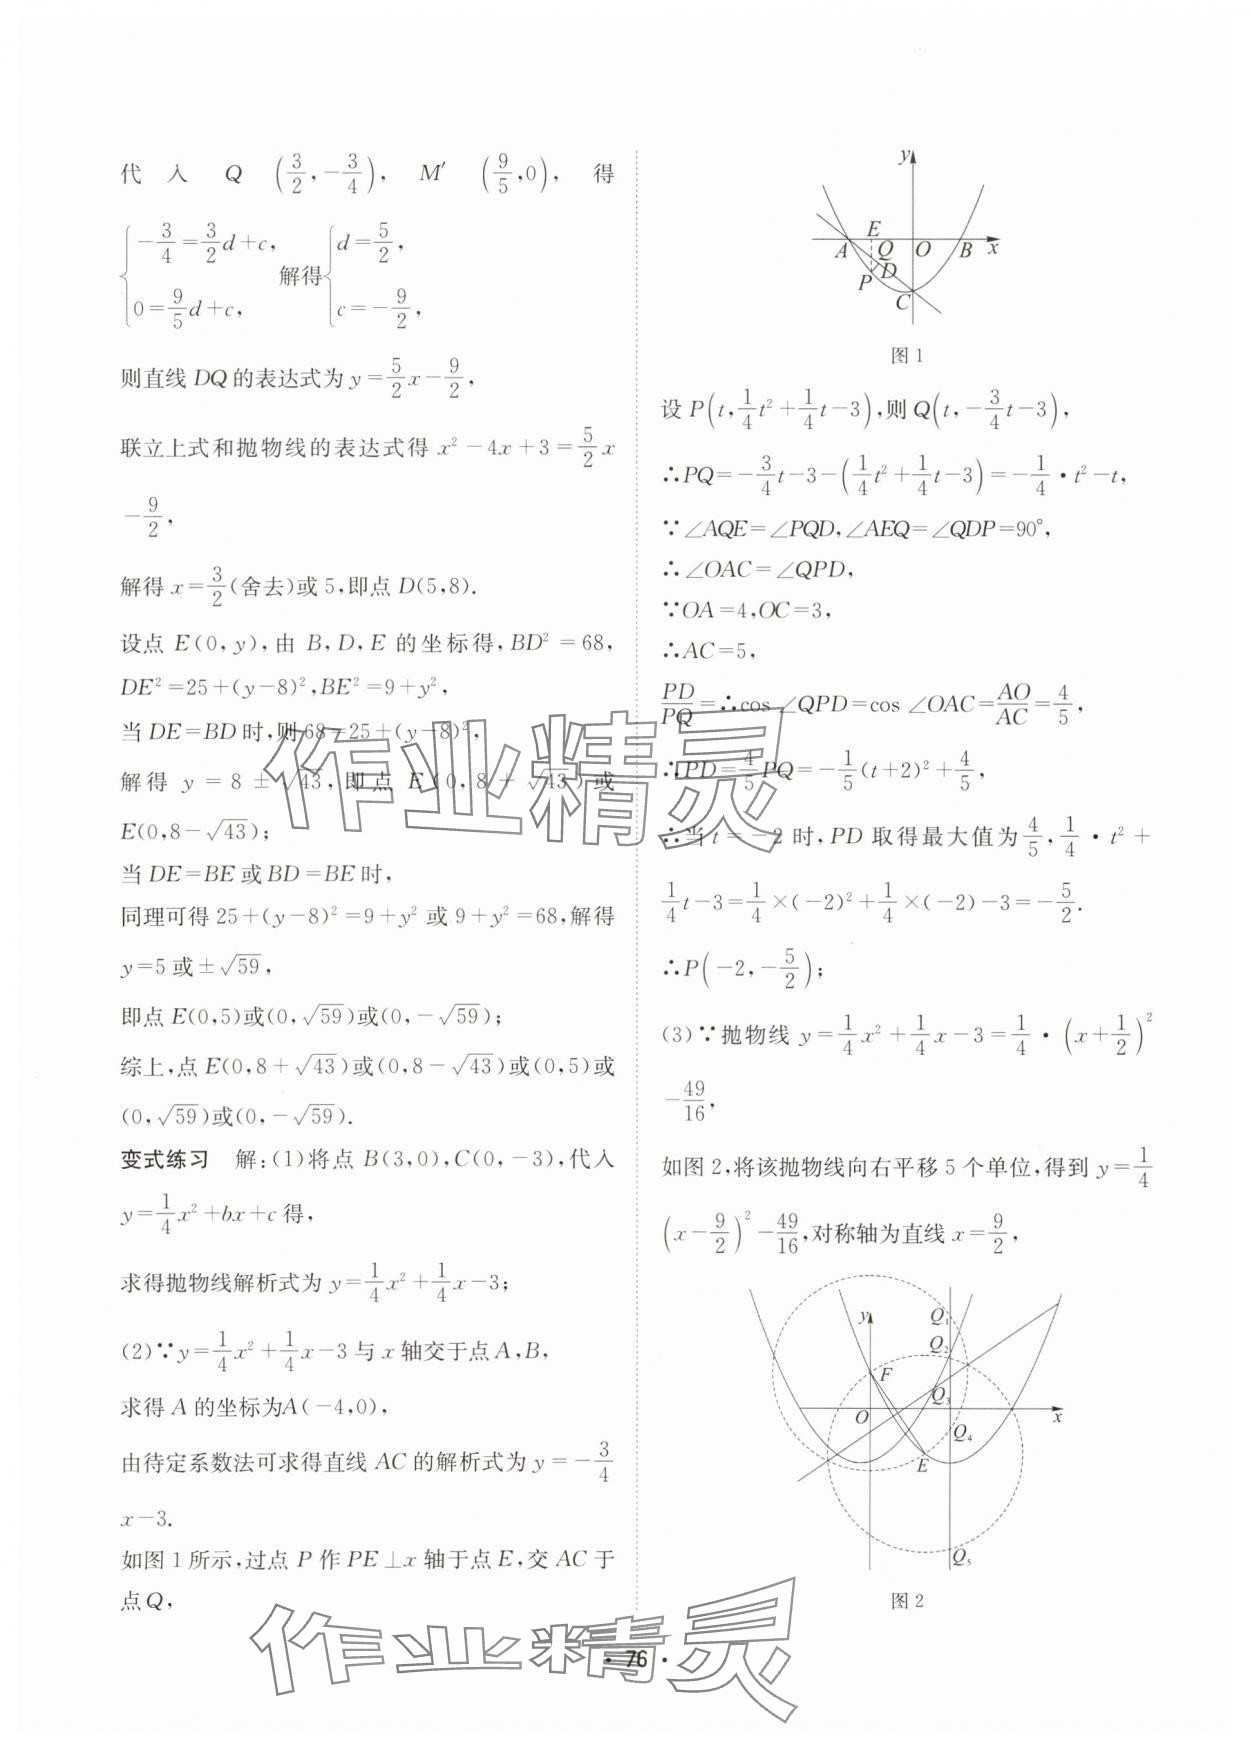 代入 Q (3/2, -3/4), M′ (9/5, 0), 得
{ -3/4 = 3/2 d + c, 0 = 9/5 d + c, 解得 { d = 5/2, c = -9/2,
则直线 DQ 的表达式为 y = 5/2 x - 9/2,
联立上式和抛物线的表达式得 x² - 4x + 3 = 5/2 x
- 9/2,
解得 x = 3/2 (舍去)或 5,即点 D(5,8).
设点 E(0, y), 由 B, D, E 的坐标得, BD² = 68,
DE² = 25 + (y-8)², BE² = 9 + y²,
当 DE = BD 时,则 68 = 25 + (y-8)²,
解得 y = 8 ± √43, 即点 E (0, 8 + √43) 或
E(0, 8 - √43);
当 DE = BE 或 BD = BE 时,
同理可得 25 + (y-8)² = 9 + y² 或 9 + y² = 68, 解得
y = 5 或 ± √59,
即点 E(0,5)或(0, √59)或(0, -√59);
综上,点 E(0, 8 + √43)或(0, 8 - √43)或(0,5)或
(0, √59)或(0, -√59).
变式练习 解:(1)将点 B(3,0),C(0,-3),代入
y = 1/4 x² + bx + c 得,
求得抛物线解析式为 y = 1/4 x² + 1/4 x - 3;
(2)∵ y = 1/4 x² + 1/4 x - 3 与 x 轴交于点 A,B,
求得 A 的坐标为A(-4,0),
由待定系数法可求得直线 AC 的解析式为 y = - 3/4
x - 3.
如图 1 所示,过点 P 作 PE⊥x 轴于点 E,交 AC 于
点 Q,
y
E
A Q O B x
P D
C
图 1
设 P(t, 1/4 t² + 1/4 t - 3),则 Q(t, -3/4 t - 3),
∴PQ = -3/4 t - 3 - (1/4 t² + 1/4 t - 3) = -1/4 · t² - t,
∵∠AQE = ∠PQD, ∠AEQ = ∠QDP = 90°,
∴∠OAC = ∠QPD,
∵OA = 4, OC = 3,
∴AC = 5,
PD/PQ = ∴cos ∠QPD = cos ∠OAC = AO/AC = 4/5,
∴PD = 4/5 PQ = -1/5 (t+2)² + 4/5,
∴当 t = -2 时, PD 取得最大值为 4/5, 1/4 · t² +
1/4 t - 3 = 1/4 × (-2)² + 1/4 × (-2) - 3 = -5/2.
∴P(-2, -5/2);
(3)∵抛物线 y = 1/4 x² + 1/4 x - 3 = 1/4 · (x + 1/2)²
- 49/16,
如图 2,将该抛物线向右平移 5 个单位,得到 y = 1/4
(x - 9/2)² - 49/16,对称轴为直线 x = 9/2,
y Q₁
Q₂
F
Q₃
O x
Q₄
E
Q₅
图 2
作业精灵
作业精灵
· 76 ·